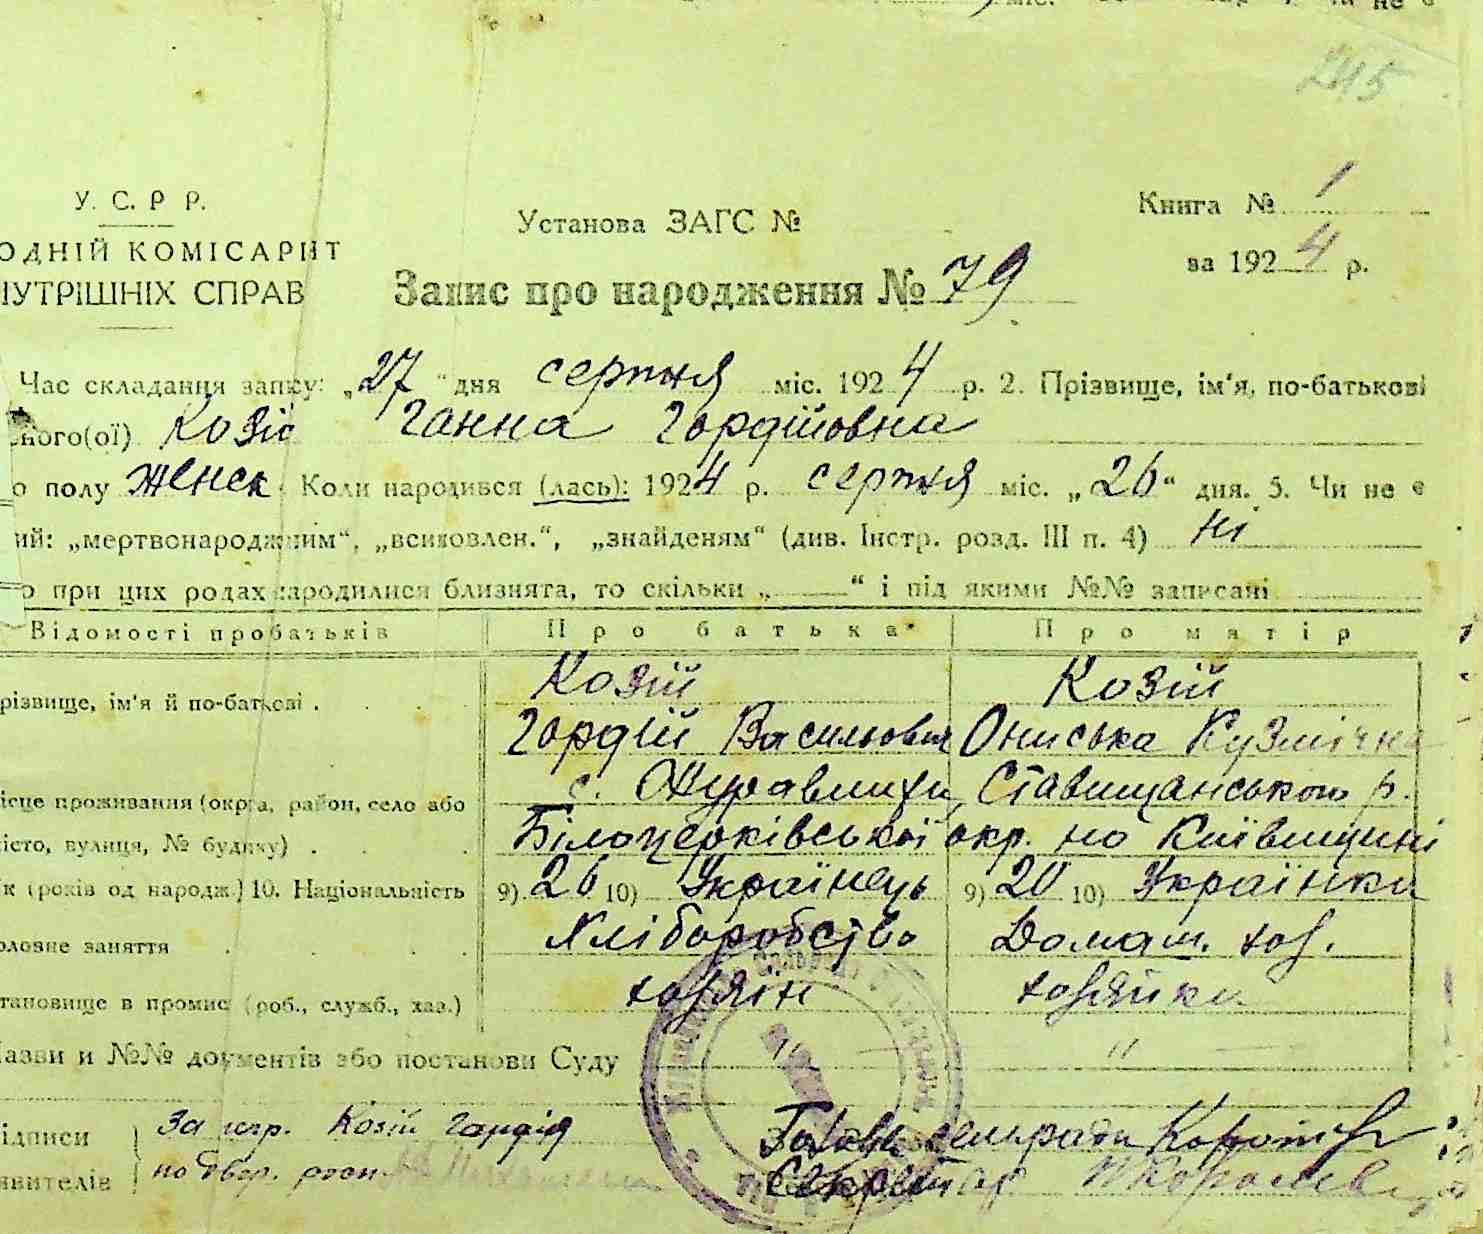 245
У. С. Р Р.
ОДНІЙ КОМІСАРИТ
ІУТРІШНІХ СПРАВ
Установа ЗАГС №
Книга № 1
за 1924 р.
Запис про народження № 79
Час складання запису: „27“ дня серпня міс. 1924 р. 2. Прізвище, ім'я, по-батькові
ного(ої) Козій Ганна Гордійовна
о полу Женск. Коли народився (лась): 1924 р. серпня міс. „26“ дня. 5. Чи не є
ий: „мертвонародженим“, „всиновлен.“, „знайденям“ (див. Інстр. розд. III п. 4) ні
о при цих родах народилися близнята, то скільки „ “ і під якими №№ записані
Відомості про батьків Про батька Про матір
різвище, ім'я й по-батькові . Козій Козій
Гордій Васильович Ониська Кузмічна
ісце проживання (округа, район, село або с. Журавлихи, Ставищанського р.
істо, вулиця, № будинку) . Білоцерківської окр. на Київщині
ік (років од народж.) 10. Національність 9) 26 10) Українець 9) 20 10) Українка
оловне заняття Хліборобство Домаш. хоз.
тановище в промис (роб., служб., хаз.) хозяїн хозяйка
Назви и №№ документів або постанови Суду " "
ідписи За негр. Козій Гордія Голова сельради
явителів по двор. Секретар